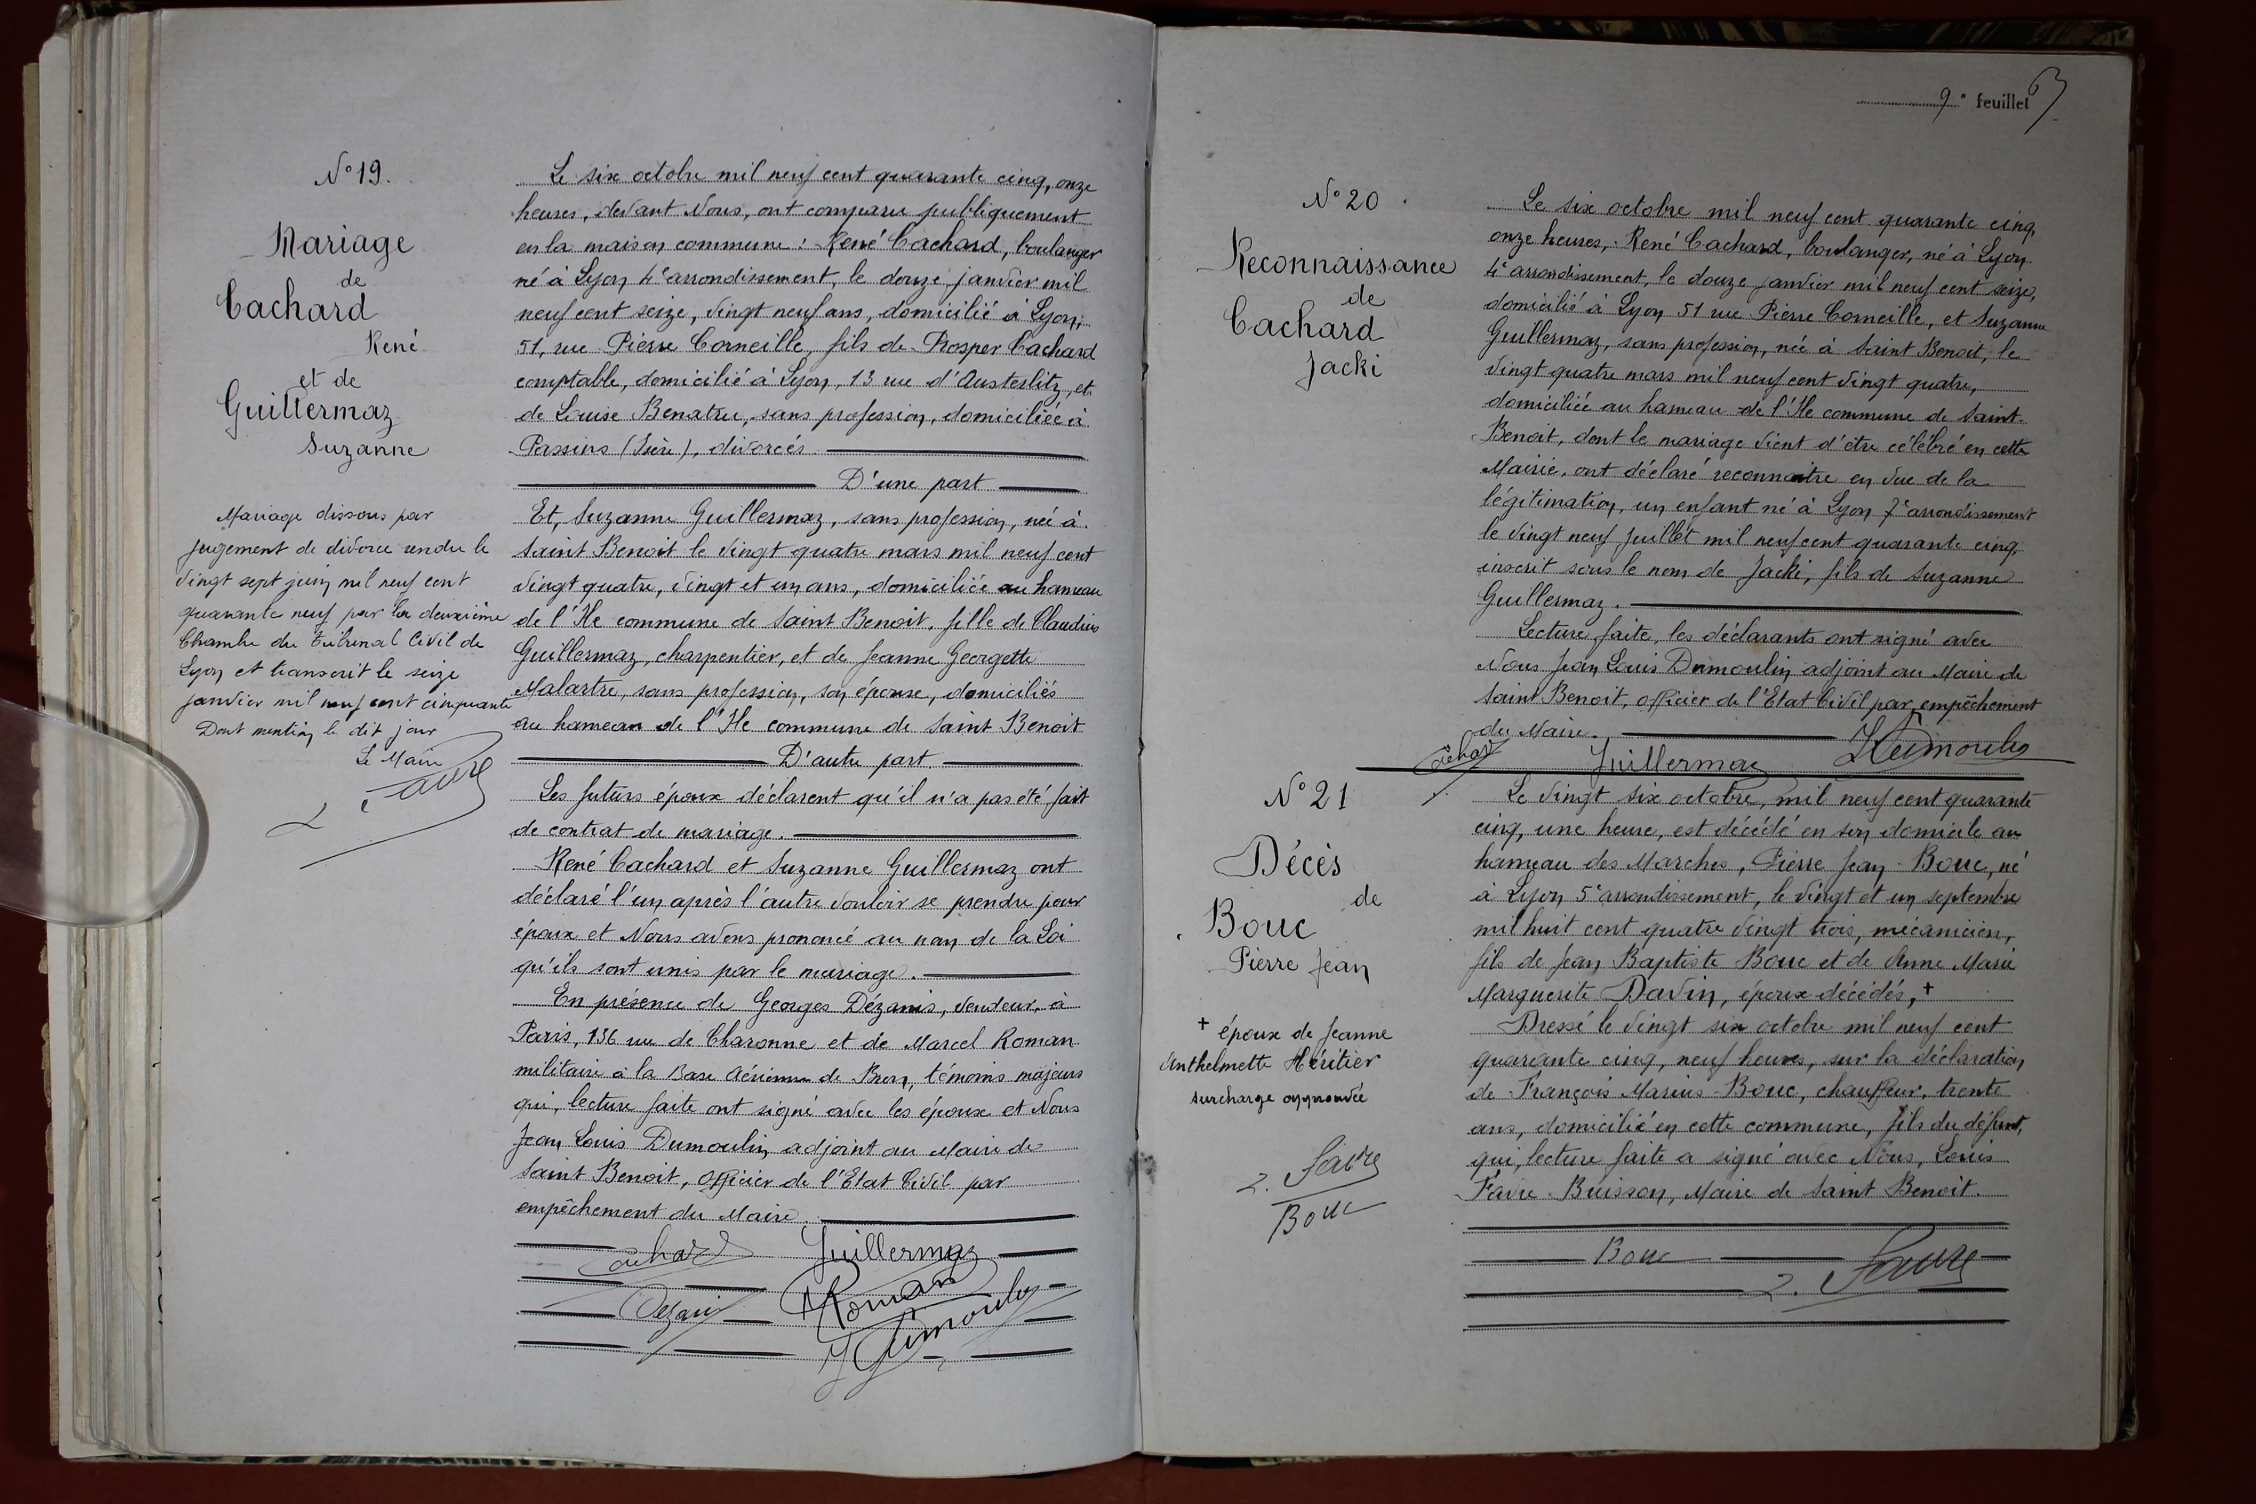 N° 19.
Mariage
de
Cachard
René
et de
Guillermaz
Suzanne
Mariage dissous par
jugement de divorce rendu le
vingt sept juin mil neuf cent
quarante neuf par la deuxième
Chambre du Tribunal Civil de
Lyon et transcrit le seize
janvier mil neuf cent cinquante
Dont mention le dit jour
Le Maire
L Favre
Le six octobre mil neuf cent quarante cinq, onze
heures, devant Nous, ont comparu publiquement
en la maison commune : René Cachard, boulanger
né à Lyon 4e arrondissement, le douze janvier mil
neuf cent seize, vingt neuf ans, domicilié à Lyon,
51, rue Pierre Corneille, fils de Prosper Cachard
comptable, domicilié à Lyon, 13 rue d'Austerlitz, et
de Louise Benatru, sans profession, domiciliée à
Passins (Isère), divorcés
D'une part
Et, Suzanne Guillermaz, sans profession, née à
Saint Benoit le vingt quatre mars mil neuf cent
vingt quatre, vingt et un ans, domiciliée au hameau
de l'Ile commune de Saint Benoit, fille de Claudius
Guillermaz, charpentier, et de Jeanne Georgette
Malartre, sans profession, son épouse, domiciliés
au hameau de l'Ile commune de Saint Benoit
D'autre part.
Les futurs époux déclarent qu'il n'a pas été fait
de contrat de mariage.
René Cachard et Suzanne Guillermaz ont
déclaré l'un après l'autre vouloir se prendre pour
époux et Nous avons prononcé au nom de la Loi
qu'ils sont unis par le mariage.
En présence de Georges Dézanis, vendeur, à
Paris, 136 rue de Charonne et de Marcel Roman
militaire à la Base Aérienne de Bron, témoins majeurs
qui, lecture faite ont signé avec les époux et Nous
Jean Louis Dumoulin adjoint au Maire de
Saint Benoit, Officier de l'Etat Civil par
empêchement du Maire.
Cachard Guillermaz
Dezanis Roman
JDumoulin
9e feuillet
N° 20
Reconnaissance
de
Cachard
Jacki
Le six octobre mil neuf cent quarante cinq,
onze heures, René Cachard, boulanger, né à Lyon
4e arrondissement, le douze janvier mil neuf cent seize,
domicilié à Lyon 51 rue Pierre Corneille, et Suzanne
Guillermaz, sans profession, née à Saint Benoit, le
vingt quatre mars mil neuf cent vingt quatre,
domiciliée au hameau de l'Ile commune de Saint-
Benoit, dont le mariage vient d'être célébré en cette
Mairie, ont déclaré reconnaitre en vue de la
légitimation, un enfant né à Lyon 7e arrondissement
le vingt neuf Juillet mil neuf cent quarante cinq
inscrit sous le nom de Jacki, fils de Suzanne
Guillermaz.
Lecture faite, les déclarants ont signé avec
Nous Jean Louis Dumoulin adjoint au Maire de
Saint Benoit, Officier de l'Etat Civil par empêchement
du Maire.
Cachard Guillermaz JDumoulin
N° 21
Décès
de
Bouc
Pierre Jean
+ époux de Jeanne
Anthelmette Héritier
surcharge approuvée
L. Favre
Bouc
Le vingt six octobre, mil neuf cent quarante
cinq, une heure, est décédé en son domicile au
hameau des Marches, Pierre Jean Bouc, né
à Lyon 5e arrondissement, le vingt et un septembre
mil huit cent quatre vingt trois, mécanicien,
fils de Jean Baptiste Bouc et de Anne Marie
Marguerite Davin, époux décédés, +
Dressé le vingt six octobre mil neuf cent
quarante cinq, neuf heures, sur la déclaration
de François Marius Bouc, chauffeur, trente
ans, domicilié en cette commune, fils du défunt,
qui, lecture faite a signé avec Nous, Louis
Favre-Buisson, Maire de Saint Benoit.
Bouc L. Favre